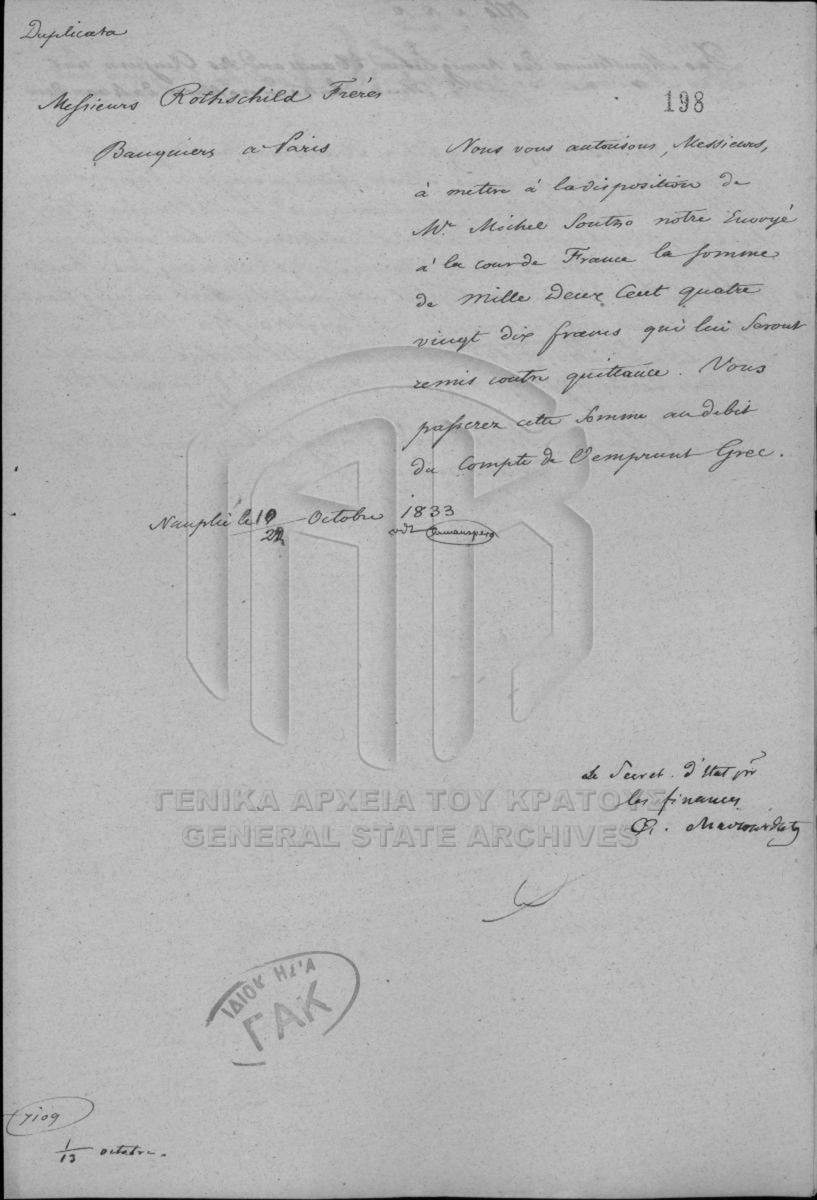 Duplicata
Messieurs Rothschild Frères
198
Banquiers a Paris
Nous vous autorisons, Messieurs,
à mettre à la disposition de
Mr. Michel Soutzo notre Envoyé
à la cour de France la somme
de Mille Deux Cent quatre
vingt dix francs qui lui seront
remis contre quittance. Vous
passerez cette somme au debit
du Compte de l'emprunt Grec.
Nauplie le 10/22 Octobre 1833
vdt Armansperg
Le Secret. d'Etat pr
les finances
A. Mavrocordato
ΓΕΝΙΚΑ ΑΡΧΕΙΑ ΤΟΥ ΚΡΑΤΟΥΣ
GENERAL STATE ARCHIVES
ΙΔΙΟΚΤΗΣΙΑ
ΓΑΚ
7109
1/13 octobre.